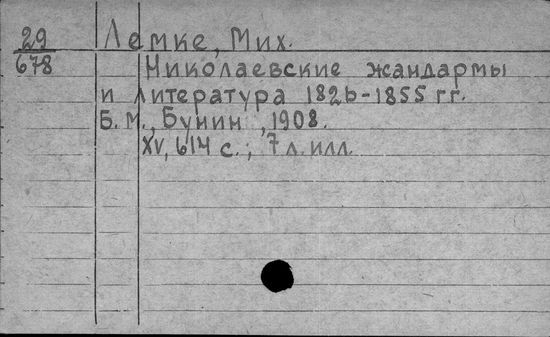 29 Лемке, Мих.
678 Николаевские жандармы
и литература 1826-1855 гг.
Б. М., Бунин, 1908.
XV, 614 с.; 7 л. илл.